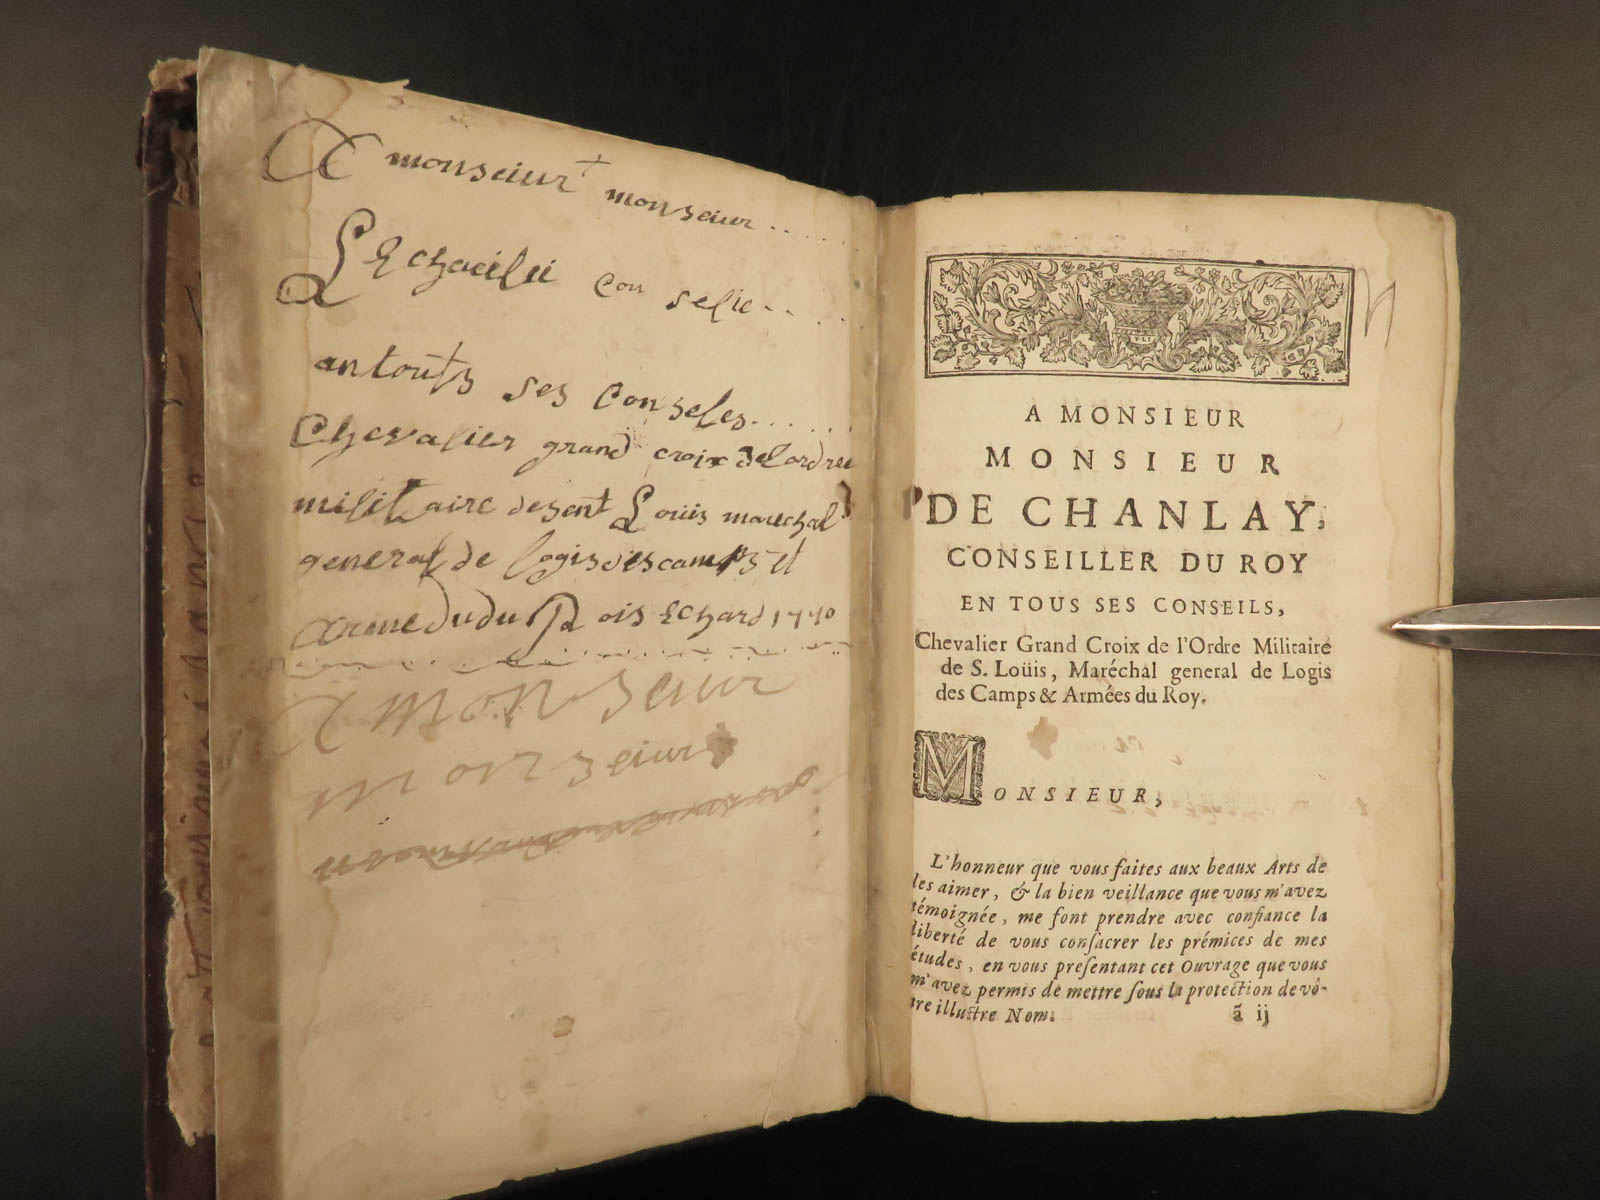 A monseiur monseiur.....
LEchaeilié con selie....
antouts ses Conseles......
Chevalier grand croix delordre
militaire desent Louis marechal
general de logis descamps et
arme dudu Rois Echard 1770
A monseiur
monseiur
A MONSIEUR
MONSIEUR
DE CHANLAY,
CONSEILLER DU ROY
EN TOUS SES CONSEILS,
Chevalier Grand Croix de l'Ordre Militaire
de S. Loüis, Maréchal general de Logis
des Camps & Armées du Roy.
MONSIEUR,
L'honneur que vous faites aux beaux Arts de
les aimer, & la bien veillance que vous m'avez
témoignée, me font prendre avec confiance la
liberté de vous conſacrer les prémices de mes
études, en vous preſentant cet Ouvrage que vous
m'avez permis de mettre ſous la protection de vô-
tre illuſtre Nom.
ã ij